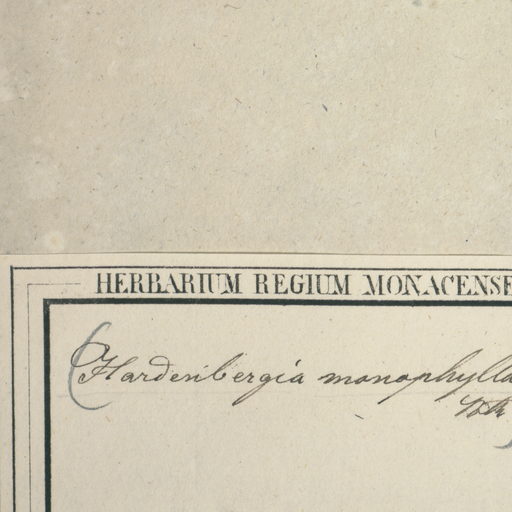 HERBARIUM REGIUM MONACENSE
Hardenbergia monophylla